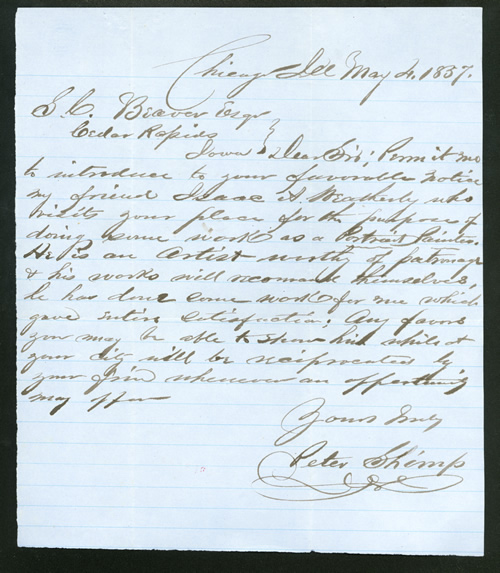 Chicago Ill May 4, 1857.
S. C. Beaver Esqr
Cedar Rapids
Iowa } Dear Sir; Permit me
to introduce to your favorable notice
my friend Isaac A. Weatherly who
visits your place for the purpose of
doing some work as a Portrait Painter.
He is an artist worthy of patronage
& his works will recommend themselves,
he has done some work for me which
gave entire satisfaction; Any favors
you may be able to show him while at
your city will be reciprocated by
your friend whenever an opportunity
may offer
Yours truly
Peter Shimp